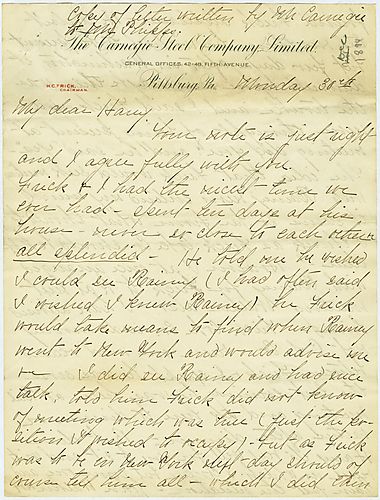 Copy of letter written by Mr Carnegie
to Mr Phipps.
Dec 1894
The Carnegie Steel Company, Limited.
GENERAL OFFICES, 42-48, FIFTH-AVENUE.
H.C. FRICK, CHAIRMAN.
Pittsburg, Pa. Monday 30th
My dear Harry
Your note is just right
and I agree fully with you.
Frick & I had the nicest time we
ever had - spent ten days at his
house - never so close to each other
all splendid - He told me he wished
I could see Rainey (I had often said
I wished I knew Rainey) he Frick
would take means to find when Rainey
went to New York and would advise me
I did see Rainey and had nice
talk told him Frick did not know
of meeting which was true (just the po-
sition I wished to occupy) - but as Frick
was to be in New York next day should of
course tell him all - which I did then